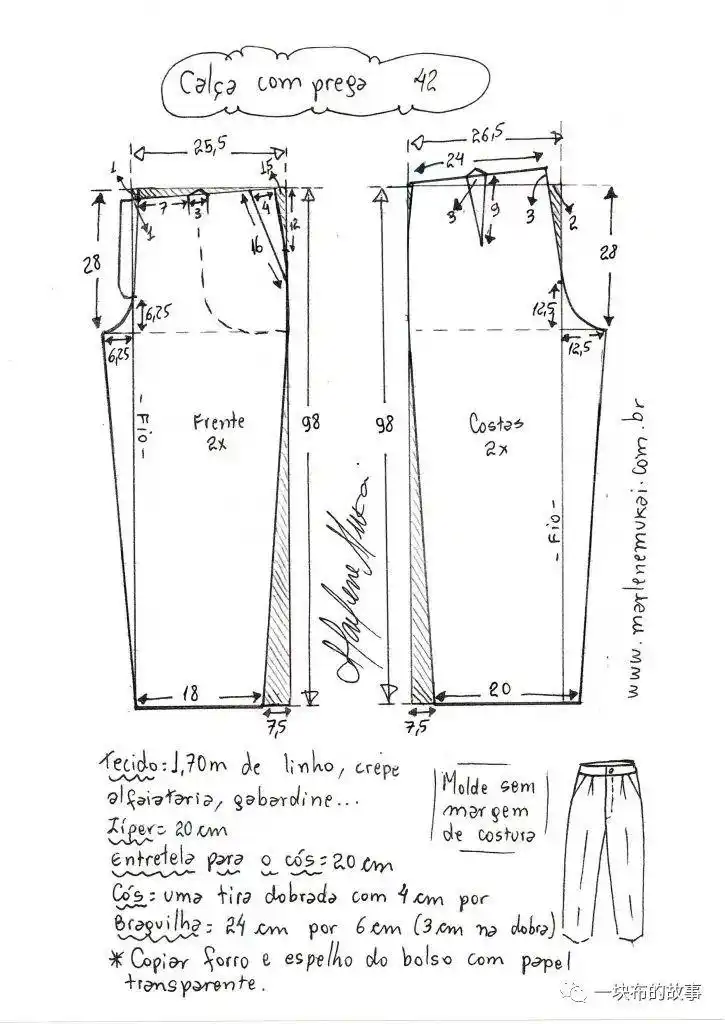 Calça com prega 42
25,5
26,5
24
1
15
7
3
4
2
1
16
28
6,25
6,25
3
9
3
2
28
12,5
12,5
- Fio -
Frente
2x
98
98
Costas
2x
- Fio -
www.marlenemukai.com.br
Marlene Mukai
18
7,5
20
7,5
Tecido: 1,70m de linho, crepe
alfaiataria, gabardine...
Zíper= 20 cm
Entretela para o cós = 20 cm
Cós = uma tira dobrada com 4 cm por
Braguilha = 24 cm por 6 cm (3 cm na dobra)
* Copiar forro e espelho do bolso com papel
transparente.
Molde sem
margem
de costura
一块布的故事